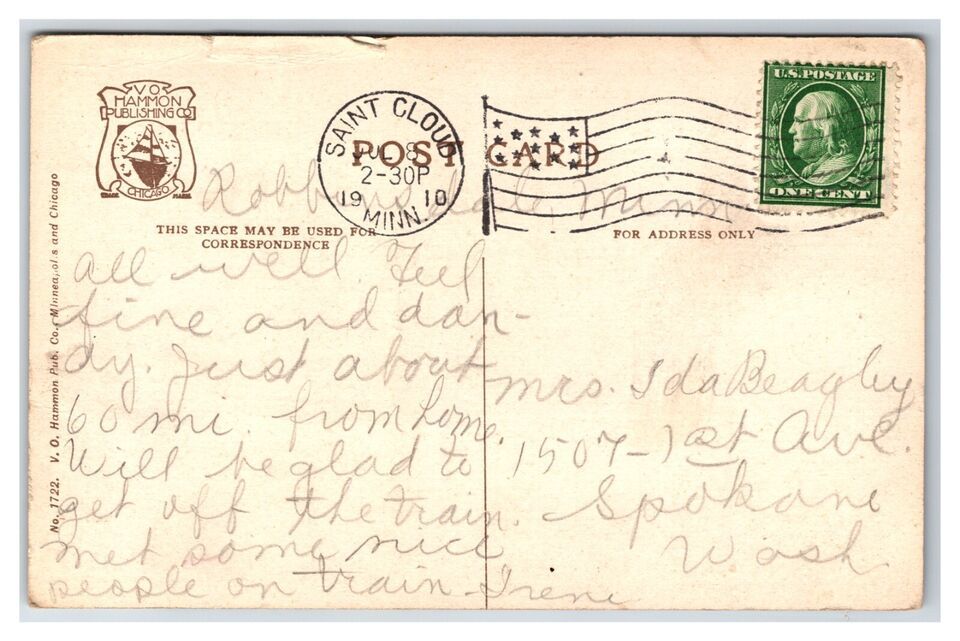 V. O.
HAMMON
PUBLISHING CO
CHICAGO
TRADE MARK
SAINT CLOUD
JUL 8
2-30P
1910
MINN.
POST CARD
U.S. POSTAGE
ONE CENT
Robbinsdale, Minn
THIS SPACE MAY BE USED FOR
CORRESPONDENCE
FOR ADDRESS ONLY
all well. Feel
fine and dan-
dy. Just about
60 mi. from home.
Will be glad to
get off the train.
met some nice
people on train. Irene
Mrs. Ida Beagley
1507-1st Ave.
Spokane
Wash.
No. 1722. V. O. Hammon Pub. Co., Minneapolis and Chicago